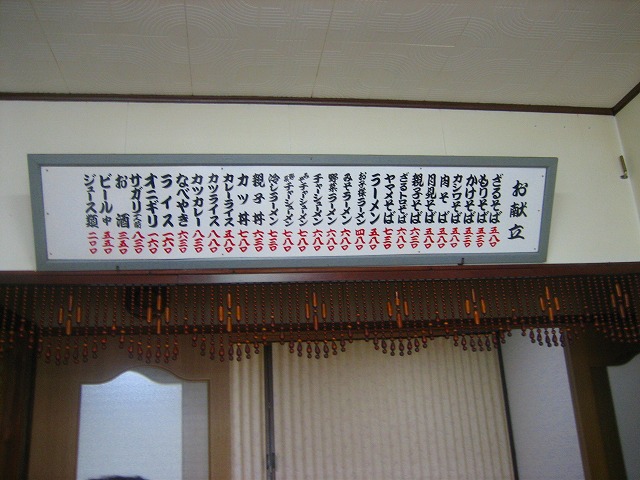 お献立
ざるそば 五八〇
もりそば 五三〇
かけそば 五三〇
カシワそば 五八〇
肉そば 五八〇
月見そば 五八〇
親子そば 六三〇
ざるトロそば 六八〇
ヤマメそば 七三〇
ラーメン 五八〇
お子様ラーメン 四八〇
みそラーメン 六三〇
野菜ラーメン 六八〇
チャーシューメン 六八〇
チャーシューメン 七八〇
チャーシューメン 七八〇
冷しラーメン 七三〇
親子丼 六三〇
カツ丼 七八〇
カレーライス 五八〇
カツライス 八三〇
カツカレー 八三〇
なべやき 六三〇
ライス 一六〇
オニギリ 一六〇
サガリ 八三〇
お酒 三五〇
ビール中 五五〇
ジュース類 二〇〇